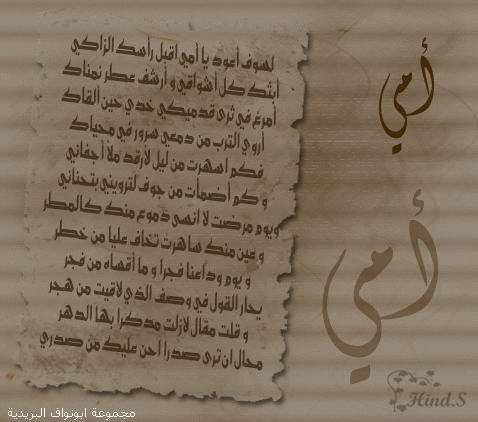 أمي
لسوف أعود يا أمي اقبل رأسك الزاكي
أبثك كل أشواقي و أرشف عطر يمناك
أمرغ في ثرى قدميكي خدي حين ألقاك
أروي الترب من دمعي سرور في محياك
فكم اسهرت من ليل لأرقد ملأ أجفاني
و كم أضمأت من جوف لترويني بتحناني
ويوم مرضت لا انسى دموع منك كالمطر
و عين منك ساهرت تخاف عليا من خطر
و يوم وداعنا فجرا و ما أقساه من فجر
يحار القول في وصف الذي لاقيت من هجر
و قلت مقال لازلت مدكرا بها الدهر
محال ان ترى صدرا احن عليك من صدري
أمي
Hind.S
مجموعة ابونواف البريدية